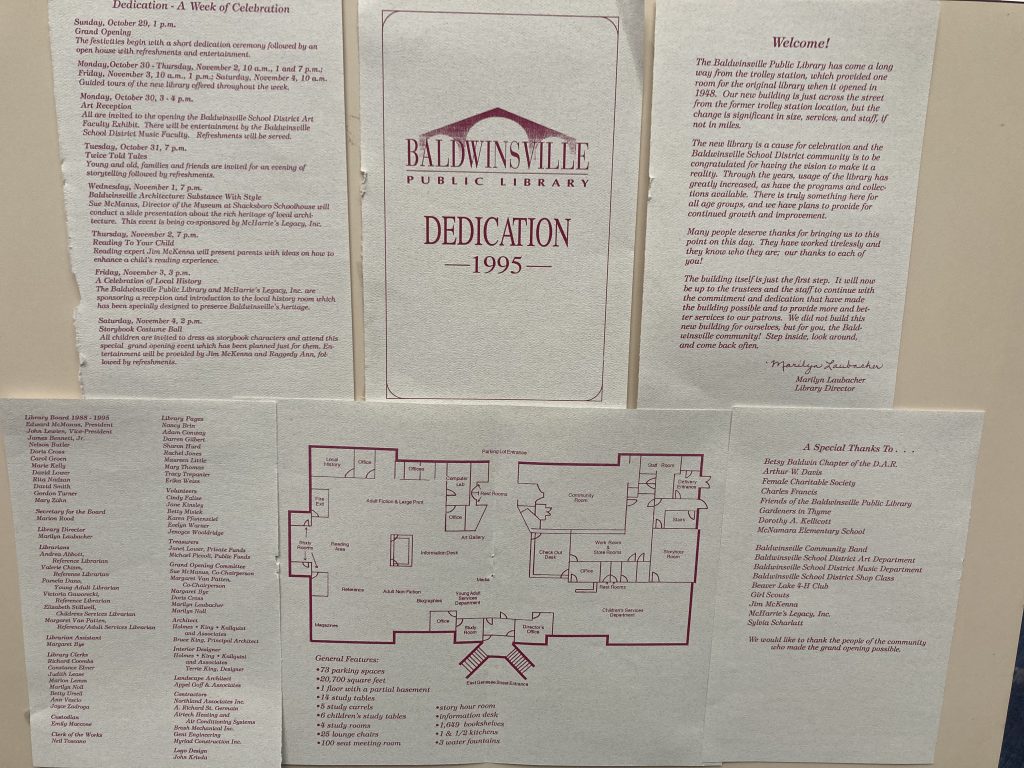 Dedication - A Week of Celebration
Sunday, October 29, 1 p.m.
Grand Opening
The festivities begin with a short dedication ceremony followed by an
open house with refreshments and entertainment.
Monday, October 30 - Thursday, November 2, 10 a.m., 1 and 7 p.m.;
Friday, November 3, 10 a.m., 1 p.m.; Saturday, November 4, 10 a.m.
Guided tours of the new library offered throughout the week.
Monday, October 30, 3 - 4 p.m.
Art Reception
All are invited to the opening the Baldwinsville School District Art
Faculty Exhibit. There will be entertainment by the Baldwinsville
School District Music Faculty. Refreshments will be served.
Tuesday, October 31, 7 p.m.
Twice Told Tales
Young and old, families and friends are invited for an evening of
storytelling followed by refreshments.
Wednesday, November 1, 7 p.m.
Baldwinsville Architecture: Substance With Style
Sue McManus, Director of the Museum at Shacksboro Schoolhouse will
conduct a slide presentation about the rich heritage of local archi-
tecture. This event is being co-sponsored by McHarrie's Legacy, Inc.
Thursday, November 2, 7 p.m.
Reading To Your Child
Reading expert Jim McKenna will present parents with ideas on how to
enhance a child's reading experience.
Friday, November 3, 3 p.m.
A Celebration of Local History
The Baldwinsville Public Library and McHarrie's Legacy, Inc. are
sponsoring a reception and introduction to the local history room which
has been specially designed to preserve Baldwinsville's heritage.
Saturday, November 4, 2 p.m.
Storybook Costume Ball
All children are invited to dress as storybook characters and attend this
special grand opening event which has been planned just for them. En-
tertainment will be provided by Jim McKenna and Raggedy Ann, fol-
lowed by refreshments.
BALDWINSVILLE
PUBLIC LIBRARY
DEDICATION
—1995—
Welcome!
The Baldwinsville Public Library has come a long
way from the trolley station, which provided one
room for the original library when it opened in
1948. Our new building is just across the street
from the former trolley station location, but the
change is significant in size, services, and staff, if
not in miles.
The new library is a cause for celebration and the
Baldwinsville School District community is to be
congratulated for having the vision to make it a
reality. Through the years, usage of the library has
greatly increased, as have the programs and collec-
tions available. There is truly something here for
all age groups, and we have plans to provide for
continued growth and improvement.
Many people deserve thanks for bringing us to this
point on this day. They have worked tirelessly and
they know who they are; our thanks to each of
you!
The building itself is just the first step. It will now
be up to the trustees and the staff to continue with
the commitment and dedication that have made
the building possible and to provide more and bet-
ter services to our patrons. We did not build this
new building for ourselves, but for you, the Bald-
winsville community! Step inside, look around,
and come back often.
Marilyn Laubacher
Marilyn Laubacher
Library Director
Library Board 1988 - 1995
Edward McManus, President
John Lewien, Vice-President
James Bennett, Jr.
Nelson Butler
Doris Cross
Carol Green
Marie Kelly
David Lower
Rita Nadzan
David Smith
Gordon Turner
Mary Zahn
Secretary for the Board
Marion Rood
Library Director
Marilyn Laubacher
Librarians
Andrea Abbott,
Reference Librarian
Valerie Chism,
Reference Librarian
Pamela Dano,
Young Adult Librarian
Victoria Gaworecki,
Reference Librarian
Elizabeth Stillwell,
Childrens Services Librarian
Margaret Van Patten,
Reference/Adult Services Librarian
Librarian Assistant
Margaret Bye
Library Clerks
Richard Coombs
Constance Elmer
Judith Lease
Marion Lemm
Marilyn Noll
Betty Unsell
Ann Vescio
Joyce Zadroga
Custodian
Emily Maccose
Clerk of the Works
Neil Toscano
Library Pages
Nancy Brin
Adam Conway
Darren Gilbert
Sharon Hurd
Rachel Jones
Maureen Little
Mary Thomas
Tracy Trepanier
Erika Weiss
Volunteers
Cindy Falise
Jane Kinsley
Betty Musek
Karen Pforenziel
Evelyn Warner
Jemogee Wooldridge
Treasurers
Janet Lower, Private Funds
Michael Picciott, Public Funds
Grand Opening Committee
Sue McManus, Co-Chairperson
Margaret Van Patten,
Co-Chairperson
Margaret Bye
Doris Cross
Marilyn Laubacher
Marilyn Noll
Architect
Holmes • King • Kallquist
and Associates
Bruce King, Principal Architect
Interior Designer
Holmes • King • Kallquist
and Associates
Terrie King, Designer
Landscape Architect
Appel Osff & Associates
Contractors
Northland Associates Inc.
A. Richard St. Germain
Airtech Heating and
Air Conditioning Systems
Brash Mechanical Inc.
Geni Engineering
Myriad Construction Inc.
Logo Design
John Krieda
Parking Lot Entrance
Local
History
Office
Offices
Computer
Lab
Rest Rooms
Community
Room
Staff Room
Delivery
Entrance
Fire
Exit
Adult Fiction & Large Print
Office
Stairs
Art Gallery
Study
Rooms
Reading
Area
Information Desk
Check Out
Desk
Work Room
&
Store Rooms
Storyhour
Room
Office
Media
Rest Rooms
Reference
Adult Non Fiction
Biographies
Young Adult
Services
Department
Children's Services
Department
Magazines
Office
Study
Room
Director's
Office
East Genesee Street Entrance
General Features:
•73 parking spaces
•20,700 square feet
•1 floor with a partial basement
•14 study tables
•5 study carrels
•6 children's study tables
•4 study rooms
•25 lounge chairs
•100 seat meeting room
•story hour room
•information desk
•1,649 bookshelves
•1 & 1/2 kitchens
•3 water fountains
A Special Thanks To . . .
Betsy Baldwin Chapter of the D.A.R.
Arthur W. Davis
Female Charitable Society
Charles Francis
Friends of the Baldwinsville Public Library
Gardeners in Thyme
Dorothy A. Kellicott
McNamara Elementary School
Baldwinsville Community Band
Baldwinsville School District Art Department
Baldwinsville School District Music Department
Baldwinsville School District Shop Class
Beaver Lake 4-H Club
Girl Scouts
Jim McKenna
McHarrie's Legacy, Inc.
Sylvia Scharlatt
We would like to thank the people of the community
who made the grand opening possible.